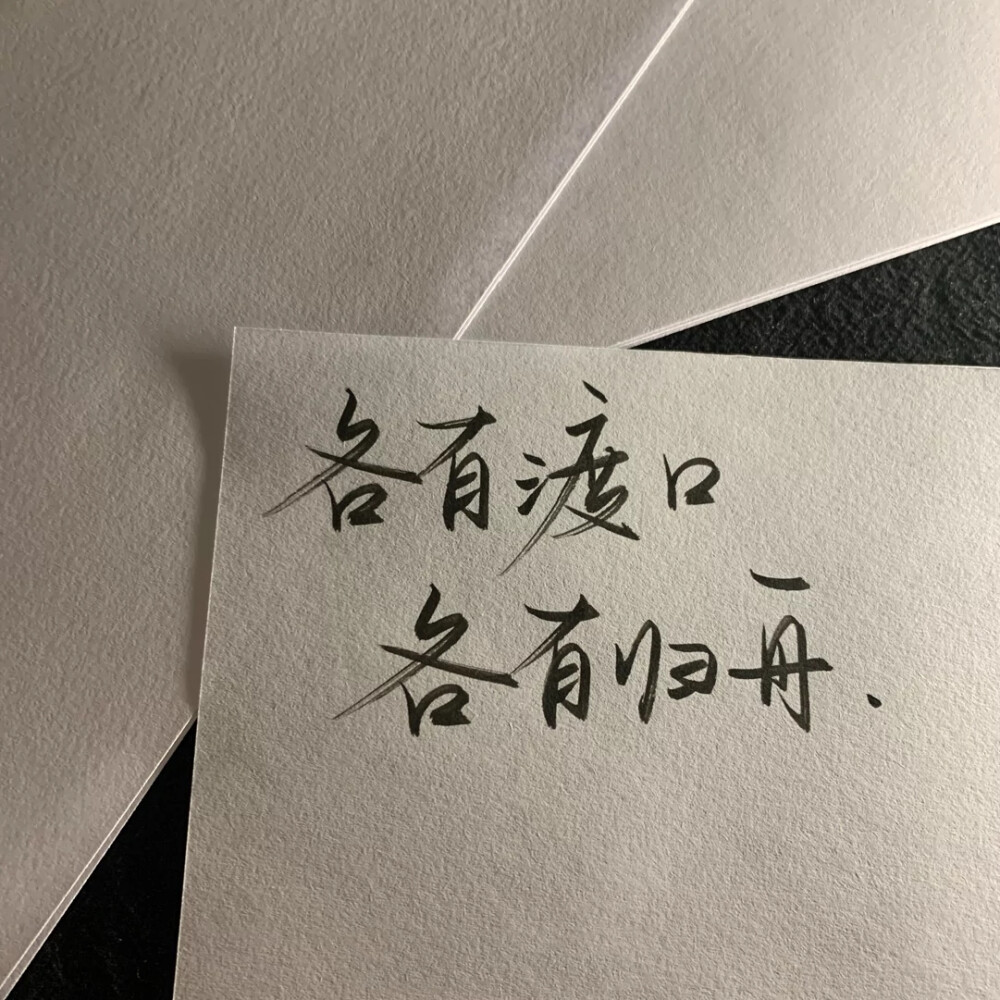 各有渡口
各有归舟.